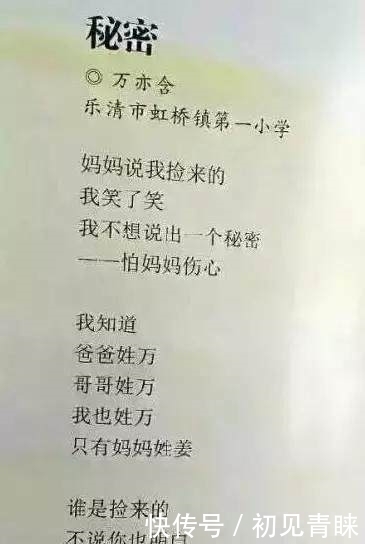 秘密
◎ 万亦含
乐清市虹桥镇第一小学
妈妈说我捡来的
我笑了笑
我不想说出一个秘密
——怕妈妈伤心
我知道
爸爸姓万
哥哥姓万
我也姓万
只有妈妈姓姜
谁是捡来的
不说你也明白
快传号 / 初见青睐